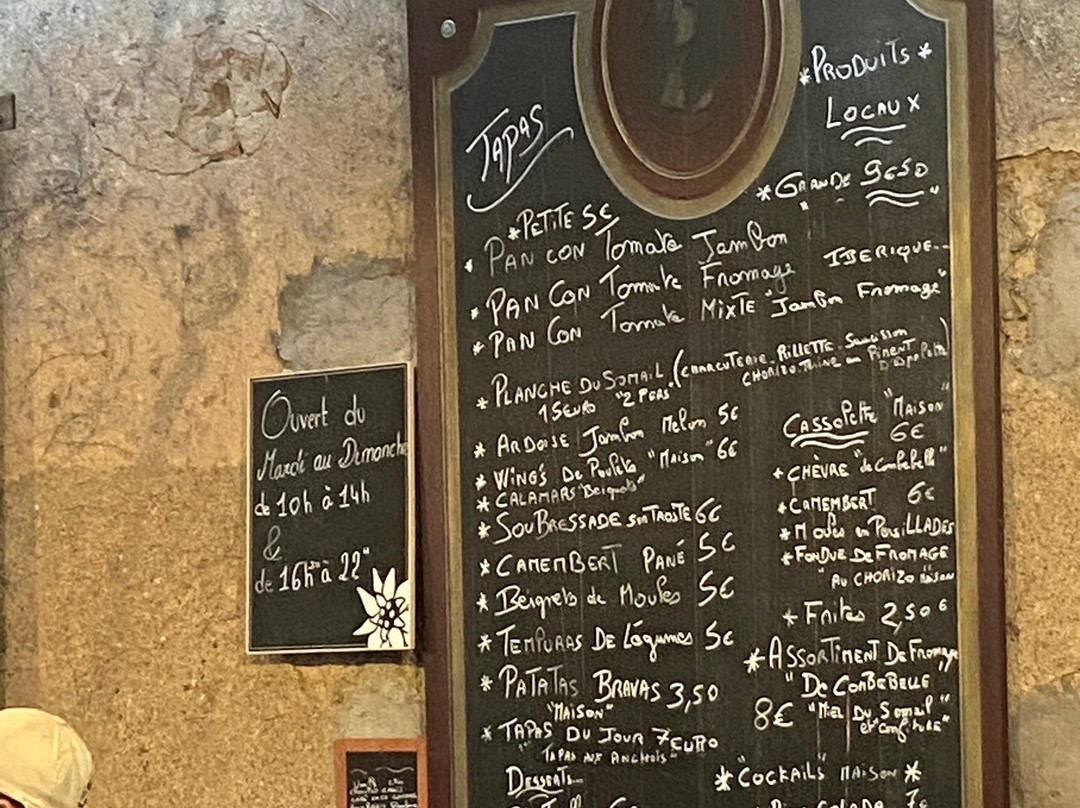 Tapas
*Produits*
Locaux
*Petite 5€
*Grande 9€50
* Pan con Tomate Jambon
Iberique...
* Pan con Tomate Fromage
* Pan con Tomate Mixte "Jambon Fromage"
* Planche du Somail (Charcuterie. Rillette. Saucisson
Chorizo. Piment
15euro "2 pers"
* Ardoise Jambon Melon 5€
* Wing's de Poulets "Maison" 6€
* Calamars "Beignets"
* SouBressade sur Toaste 6€
* Camembert Pané 5€
* Beignets de Moules 5€
* Tempuras de Légumes 5€
* Patatas Bravas 3,50
"Maison"
* Tapas du Jour 7euro
"Tapas aux Anchois"
Desserts...
Cassolette "Maison"
6€
* Chèvre "de Combebelle"
* Camembert 6€
* Moules en Persillades
* Fondue de Fromage
"Au Chorizo Maison
* Frites 2,50€
* Assortiment de Fromage
"De Combebelle
8€ "Miel du Somail"
et Confiture"
* "Cockails" Maison *
Colada 7€
Ouvert du
Mardi au Dimanche
de 10h à 14h
&
de 16h30 à 22h